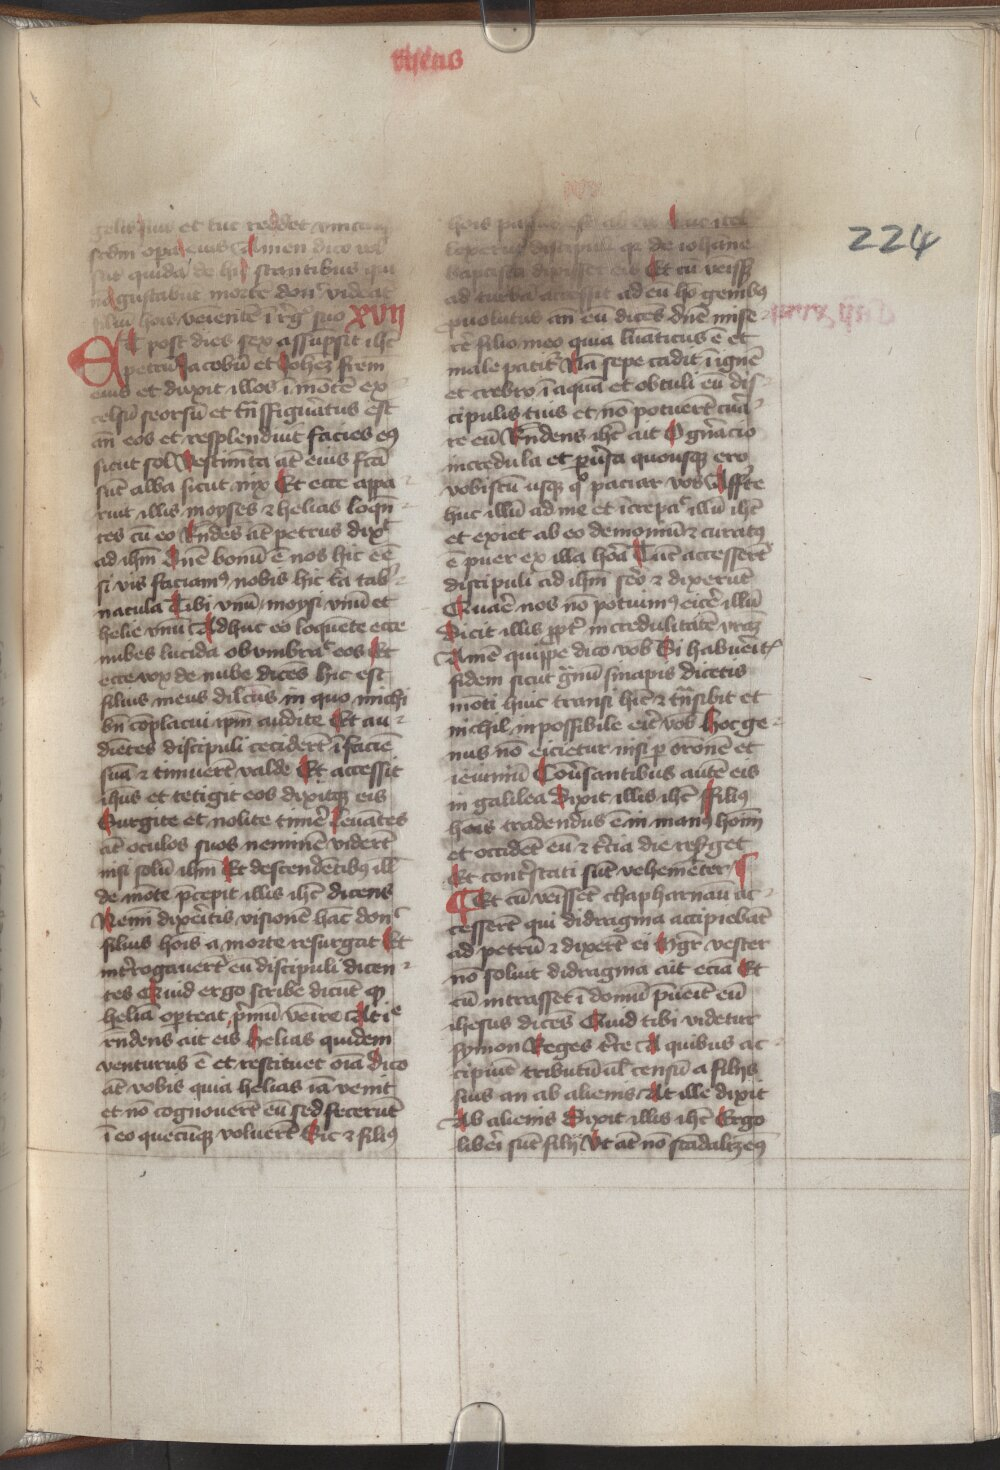 theus
gelis suis et tuc reddet vnicuiq
scdm opa eius Amen dico vob
sut quida de his stantibus qui
no gustabut morte donc videat
filiu hois veniente i rg suo XVII
Et post dies sex assupsit ihc
petru Jacobu et Johez frem
eius et duxit illos i mote ex
celsu seorsu et tnsfiguratus est
an eos et resplenduit facies eiꝰ
sicut sol Vestimta at eius fca
sut alba sicut nix Et ecce appa
ruit illis moyses ⁊ helias loqn
tes cu eo Rndes at petrus dixt
ad ihm Dne bonu e nos hic ee
si vis faciamꝰ nobis hic tia tab
nacula Tibi vnu moysi vnu et
helie vnu Adhuc eo loquete ecce
nubes lucida obumbrat eos Et
ecce vox de nube dices hic est
filius meus dilcus in quo michi
bn coplacui ipm audite Et au
dietes discipuli cecidert i facie
sua ⁊ timuert valde Et accessit
ihus et tetigit eos dixitqꝫ eis
Surgite et nolite time Leuates
at oculos suos nemine vidert
nisi solu ihm Et descendetibꝰ ill
de mote pcepit illis ihc dicens
Nemi dixeitis visione hac donc
filius hois a morte resurgat Et
intrrogauert eu discipuli dicen
tes Quid ergo scribe dicut ꝙ
helia oꝑteat pmu veire At ie
rndens ait eis helias quidem
venturus e et restituet oia Dico
at vobis quia helias ia venit
et no cognouert eu sed fecerut
i eo quecuqꝫ voluert Sic ⁊ filiꝰ
hois Tuc itel
lexerut discipuli qꝛ de iohane
baptista dixisset eis Et cu veissꝫ
ad turba accessit ad eu ho genibꝰ
puolutus an eu dices dne mise
re filio meo quia luaticus e et
male patit Na sepe cadit i igne
et crebro i aqua et obtuli eu dis
cipulis tuis et no potuert cura
re eu Rndens ihc ait O gnacio
incredula et ꝑuisa quousqꝫ ero
vobiscu usqꝫ qo paciar vos Affte
huc illu ad me et increpat illu ihc
et exiet ab eo demoniu ⁊ curatꝰ
e puer ex illa hoa Tuc accessert
discipuli ad ihm scro ⁊ dixerut
Quae nos no potuimꝰ eice illu
Dicit illis ppt incredulitate vraꝫ
Ame quippe dico vob Si habueitꝭ
fidem sicut gnu sinapis dicetis
moti huic transi hic ⁊ tnsibit et
nichil inpossibile eit vob Hoc ge
nus no eicietur nisi ꝑ orone et
ieiuniu Couisantibus aute eis
in galilea Dixit illis ihc Filiꝰ
hois tradendus e in manꝰ hoim
et occidet eu ⁊ tcia die resget
Et cotrstati sut vehemeter
Et cu veisset chapharnau ac
cessert qui didragma accipiebat
ad petru ⁊ dixert ei Mgr vester
no soluit didragma ait ecia Et
cu intrasset i domu pueit eu
ihesus dices Quid tibi videtur
symon Reges tre A quibus ac
cipiut tributu ul censu a filijs
suis an ab alienis At ille dixit
Ab alienis Dixit illis ihc Ergo
libei sut filij Vt at no scadalizeꝰ
224